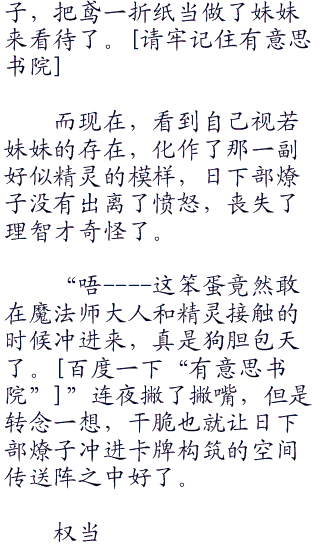 子，把鸢一折纸当做了妹妹
来看待了。[请牢记住有意思
书院]
而现在，看到自己视若
妹妹的存在，化作了那一副
好似精灵的模样，日下部燎
子没有出离了愤怒，丧失了
理智才奇怪了。
“唔----这笨蛋竟然敢
在魔法师大人和精灵接触的
时候冲进来，真是狗胆包天
了。[百度一下“有意思书
院”]”连夜撇了撇嘴，但是
转念一想，干脆也就让日下
部燎子冲进卡牌构筑的空间
传送阵之中好了。
权当